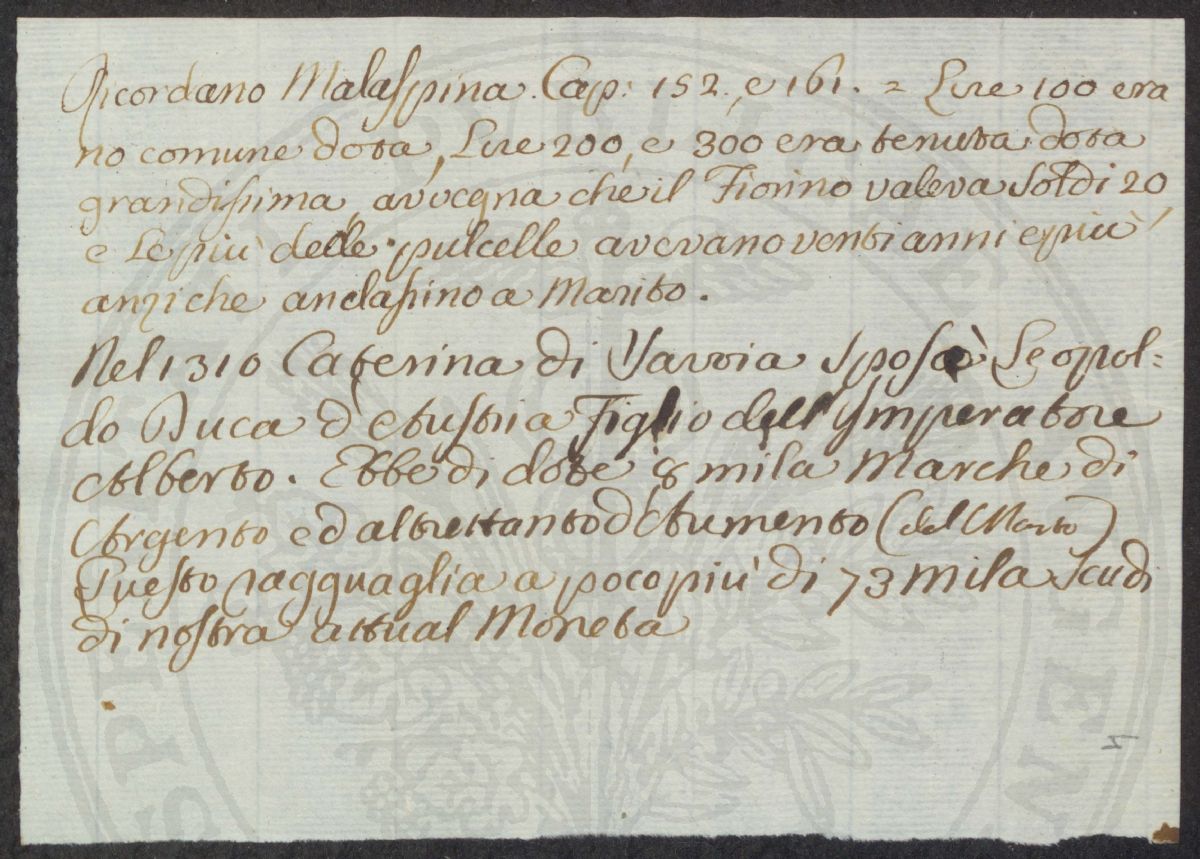 Ricordano Malaspina. Cap: 152. e 161. = Lire 100 era
no comune dota, Lire 200, e 300 era tenuta dota
grandissima, avvegna che il Fiorino valeva Soldi 20
e Le più delle pulcelle avevano venti anni e più
anziche andassino a Marito.
Nel 1310 Caterina di Savoia Sposò Leopol=
do Duca d'Austria Figlio dell'Imperatore
Alberto. Ebbe di dote 8 mila Marche di
Argento ed altrettanto d'Aumento (del Marito)
Questo ragguaglia a poco più di 73 mila Scudi
di nostra attual Moneta